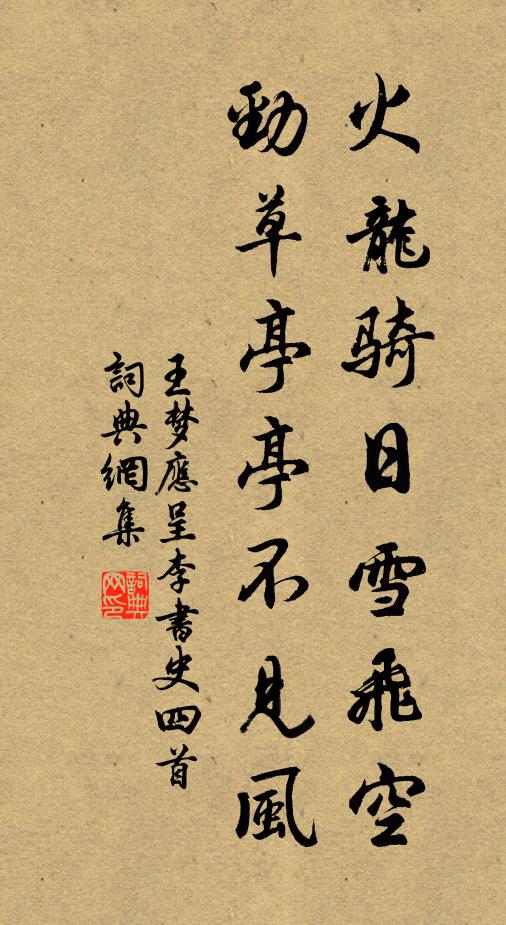 火龍騎日雪飛空
勁草亭亭不見風
王梦應呈李書史四首
詞典網集
詞典
网印